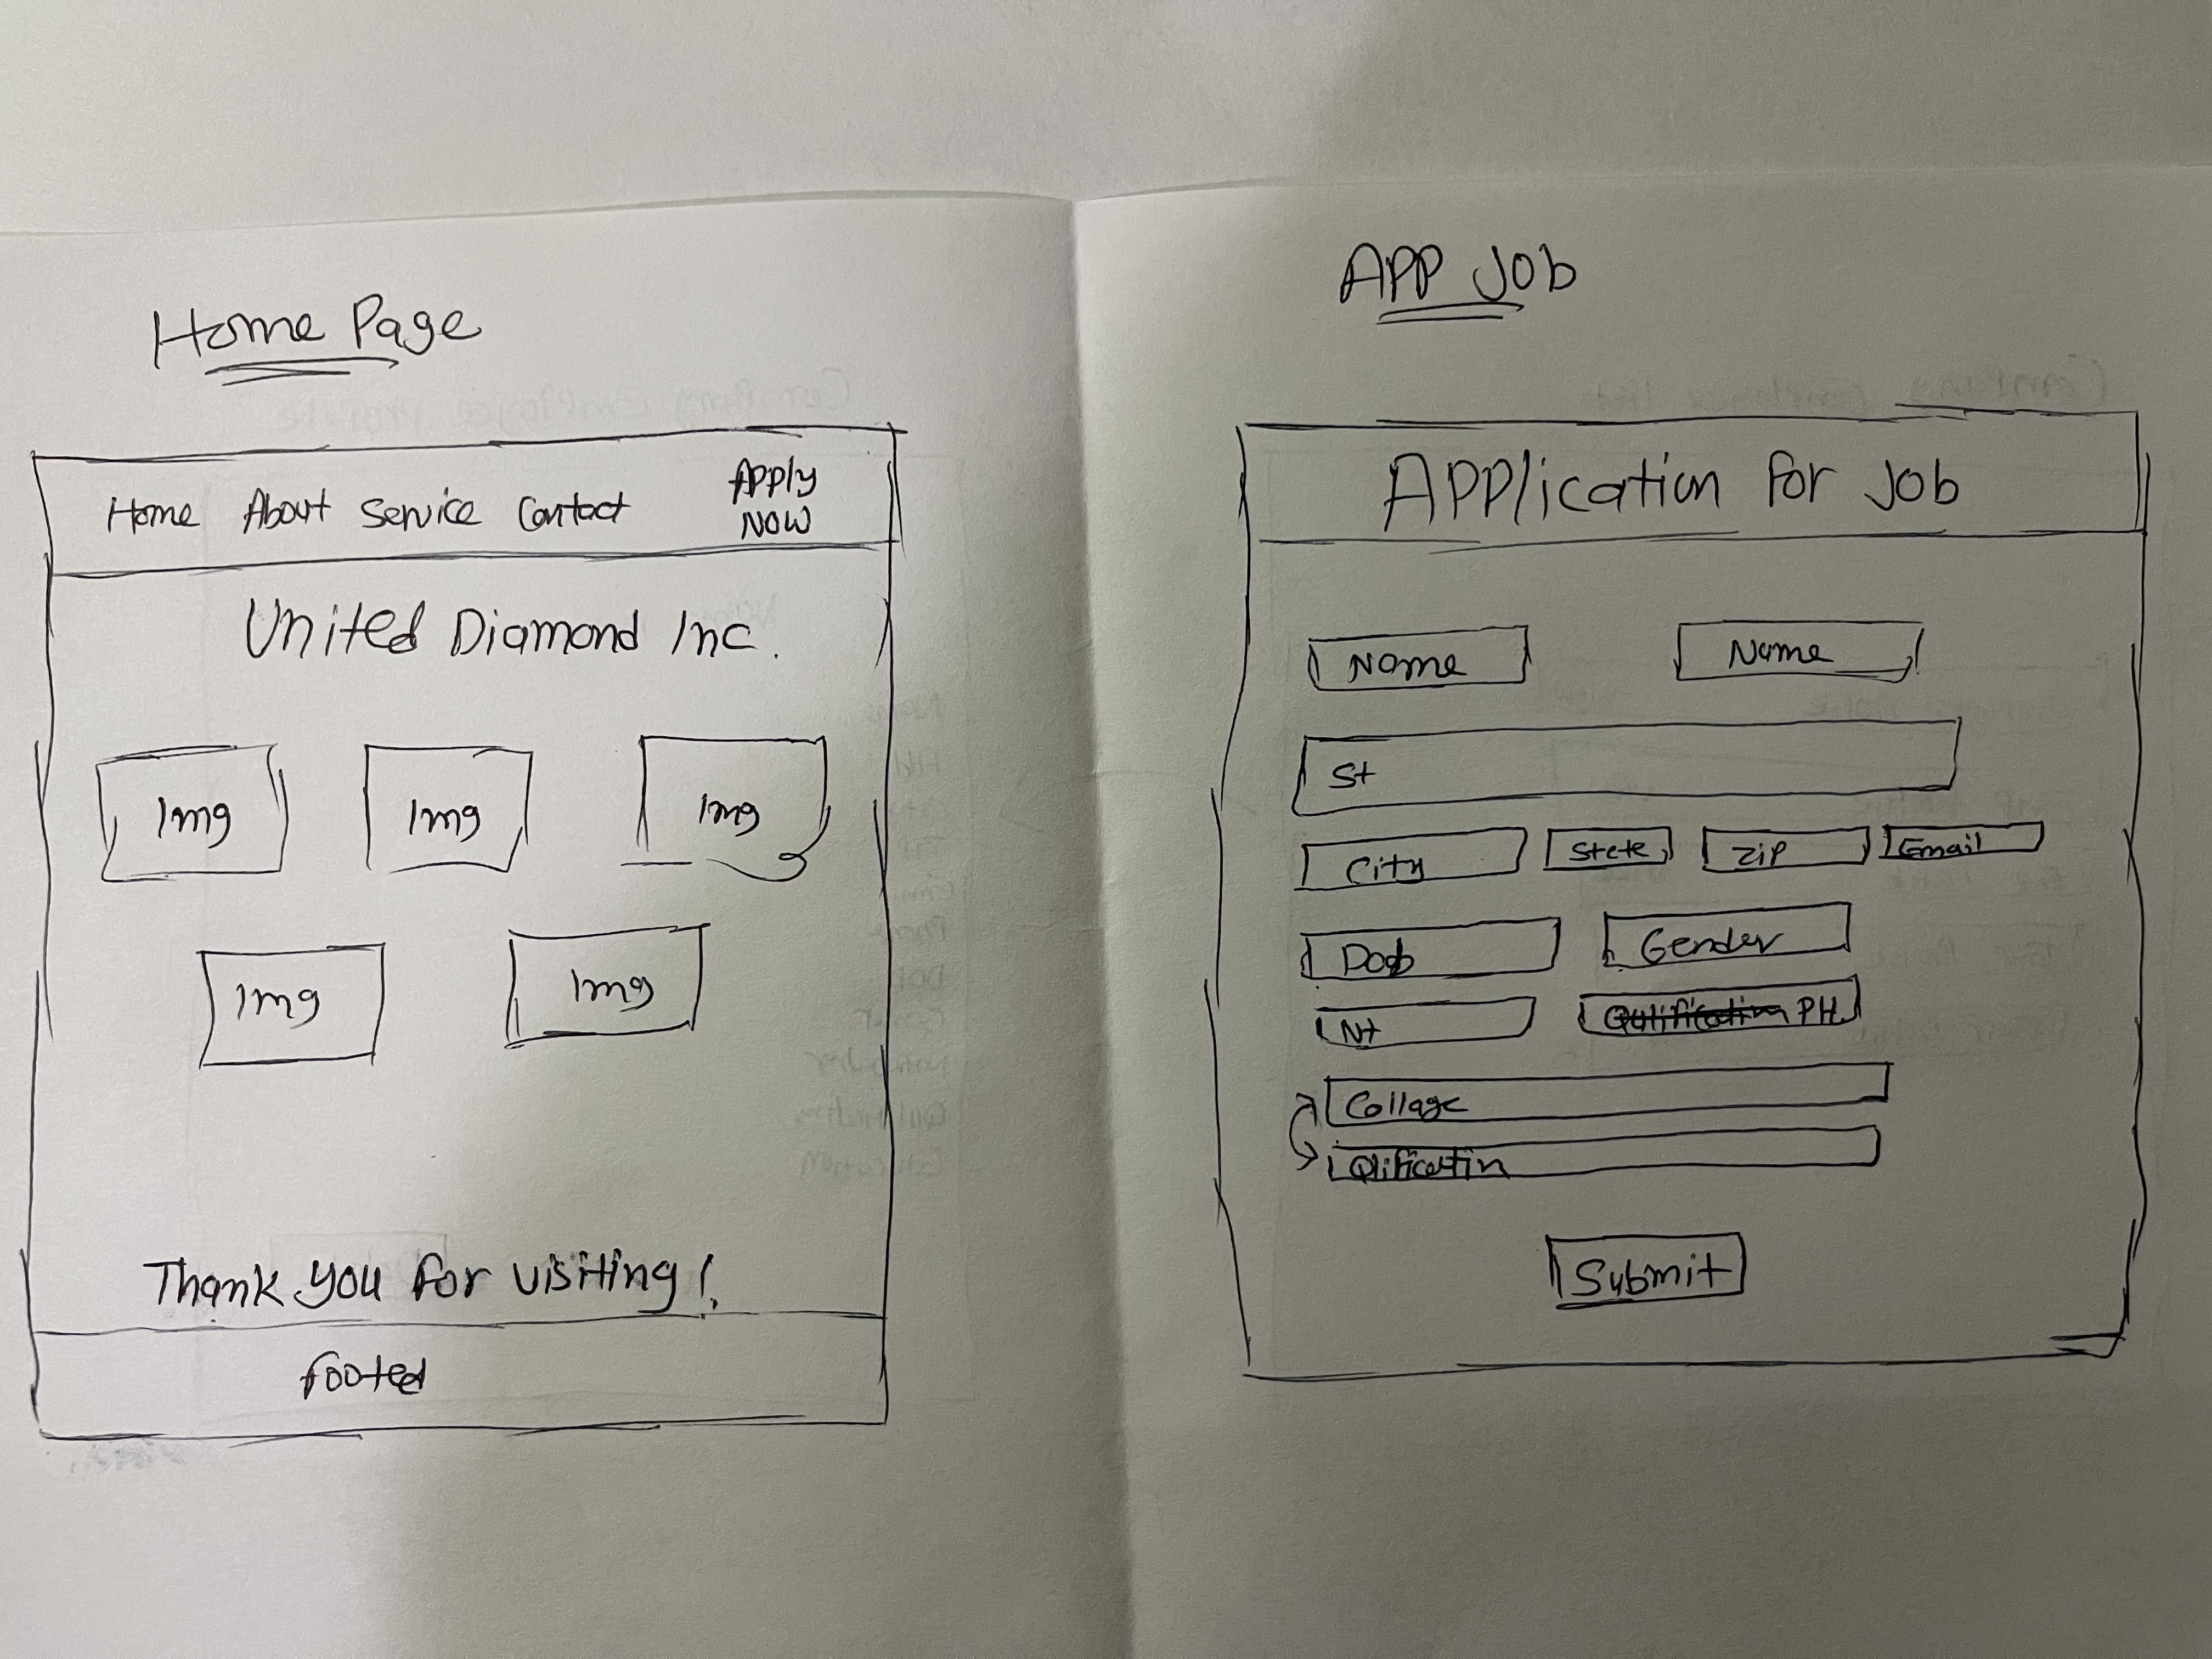 Home Page
Home About Service Contact Apply Now
United Diamond Inc.
Img Img Img
Img Img
Thank you for visiting!
footed
APP Job
Application for Job
Name Name
St
City State Zip Email
Dob Gender
Nt PH
Collage
Qlificatin
Submit